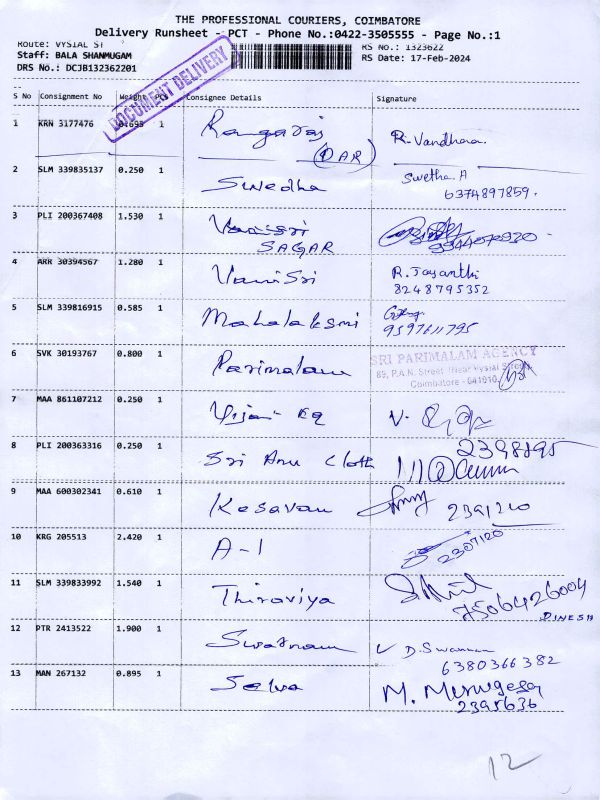 THE PROFESSIONAL COURIERS, COIMBATORE
Delivery Runsheet - PCT - Phone No.:0422-3505555 - Page No.:1
Route: VYSIAL ST RS No.: 1323622
Staff: BALA SHANMUGAM RS Date: 17-Feb-2024
DRS No.: DCJB132362201
DOCUMENT DELIVERY
S No Consignment No Weight Pcs Consignee Details Signature
1 KRN 3177476 0.695 1 Rangaraj R. Vandhana.
(DAR)
2 SLM 339835137 0.250 1 Swedha Swetha. A
6374897859.
3 PLI 200367408 1.530 1 Vanisri
SAGAR
4 ARR 30394567 1.280 1 Vanisri R. Jayanthi
8248795352
5 SLM 339816915 0.585 1 Mahalaksmi
9597611795
6 SVK 30193767 0.800 1 Parimalam SRI PARIMALAM AGENCY
85, P.A.N. Street (Near Vysial Street)
Coimbatore - 641010
7 MAA 861107212 0.250 1 Vijai V.
8 PLI 200363316 0.250 1 Sri Anu Cloth 2398195
9 MAA 600302341 0.610 1 Kesavan 2391210
10 KRG 205513 2.420 1 A-1 2307120
11 SLM 339833992 1.540 1 Thiraviya
7506426004
DINESH
12 PTR 2413522 1.900 1 Swarnam D. Swarnam
6380366382
13 MAN 267132 0.895 1 Selva M. Murugesa
2395636
12